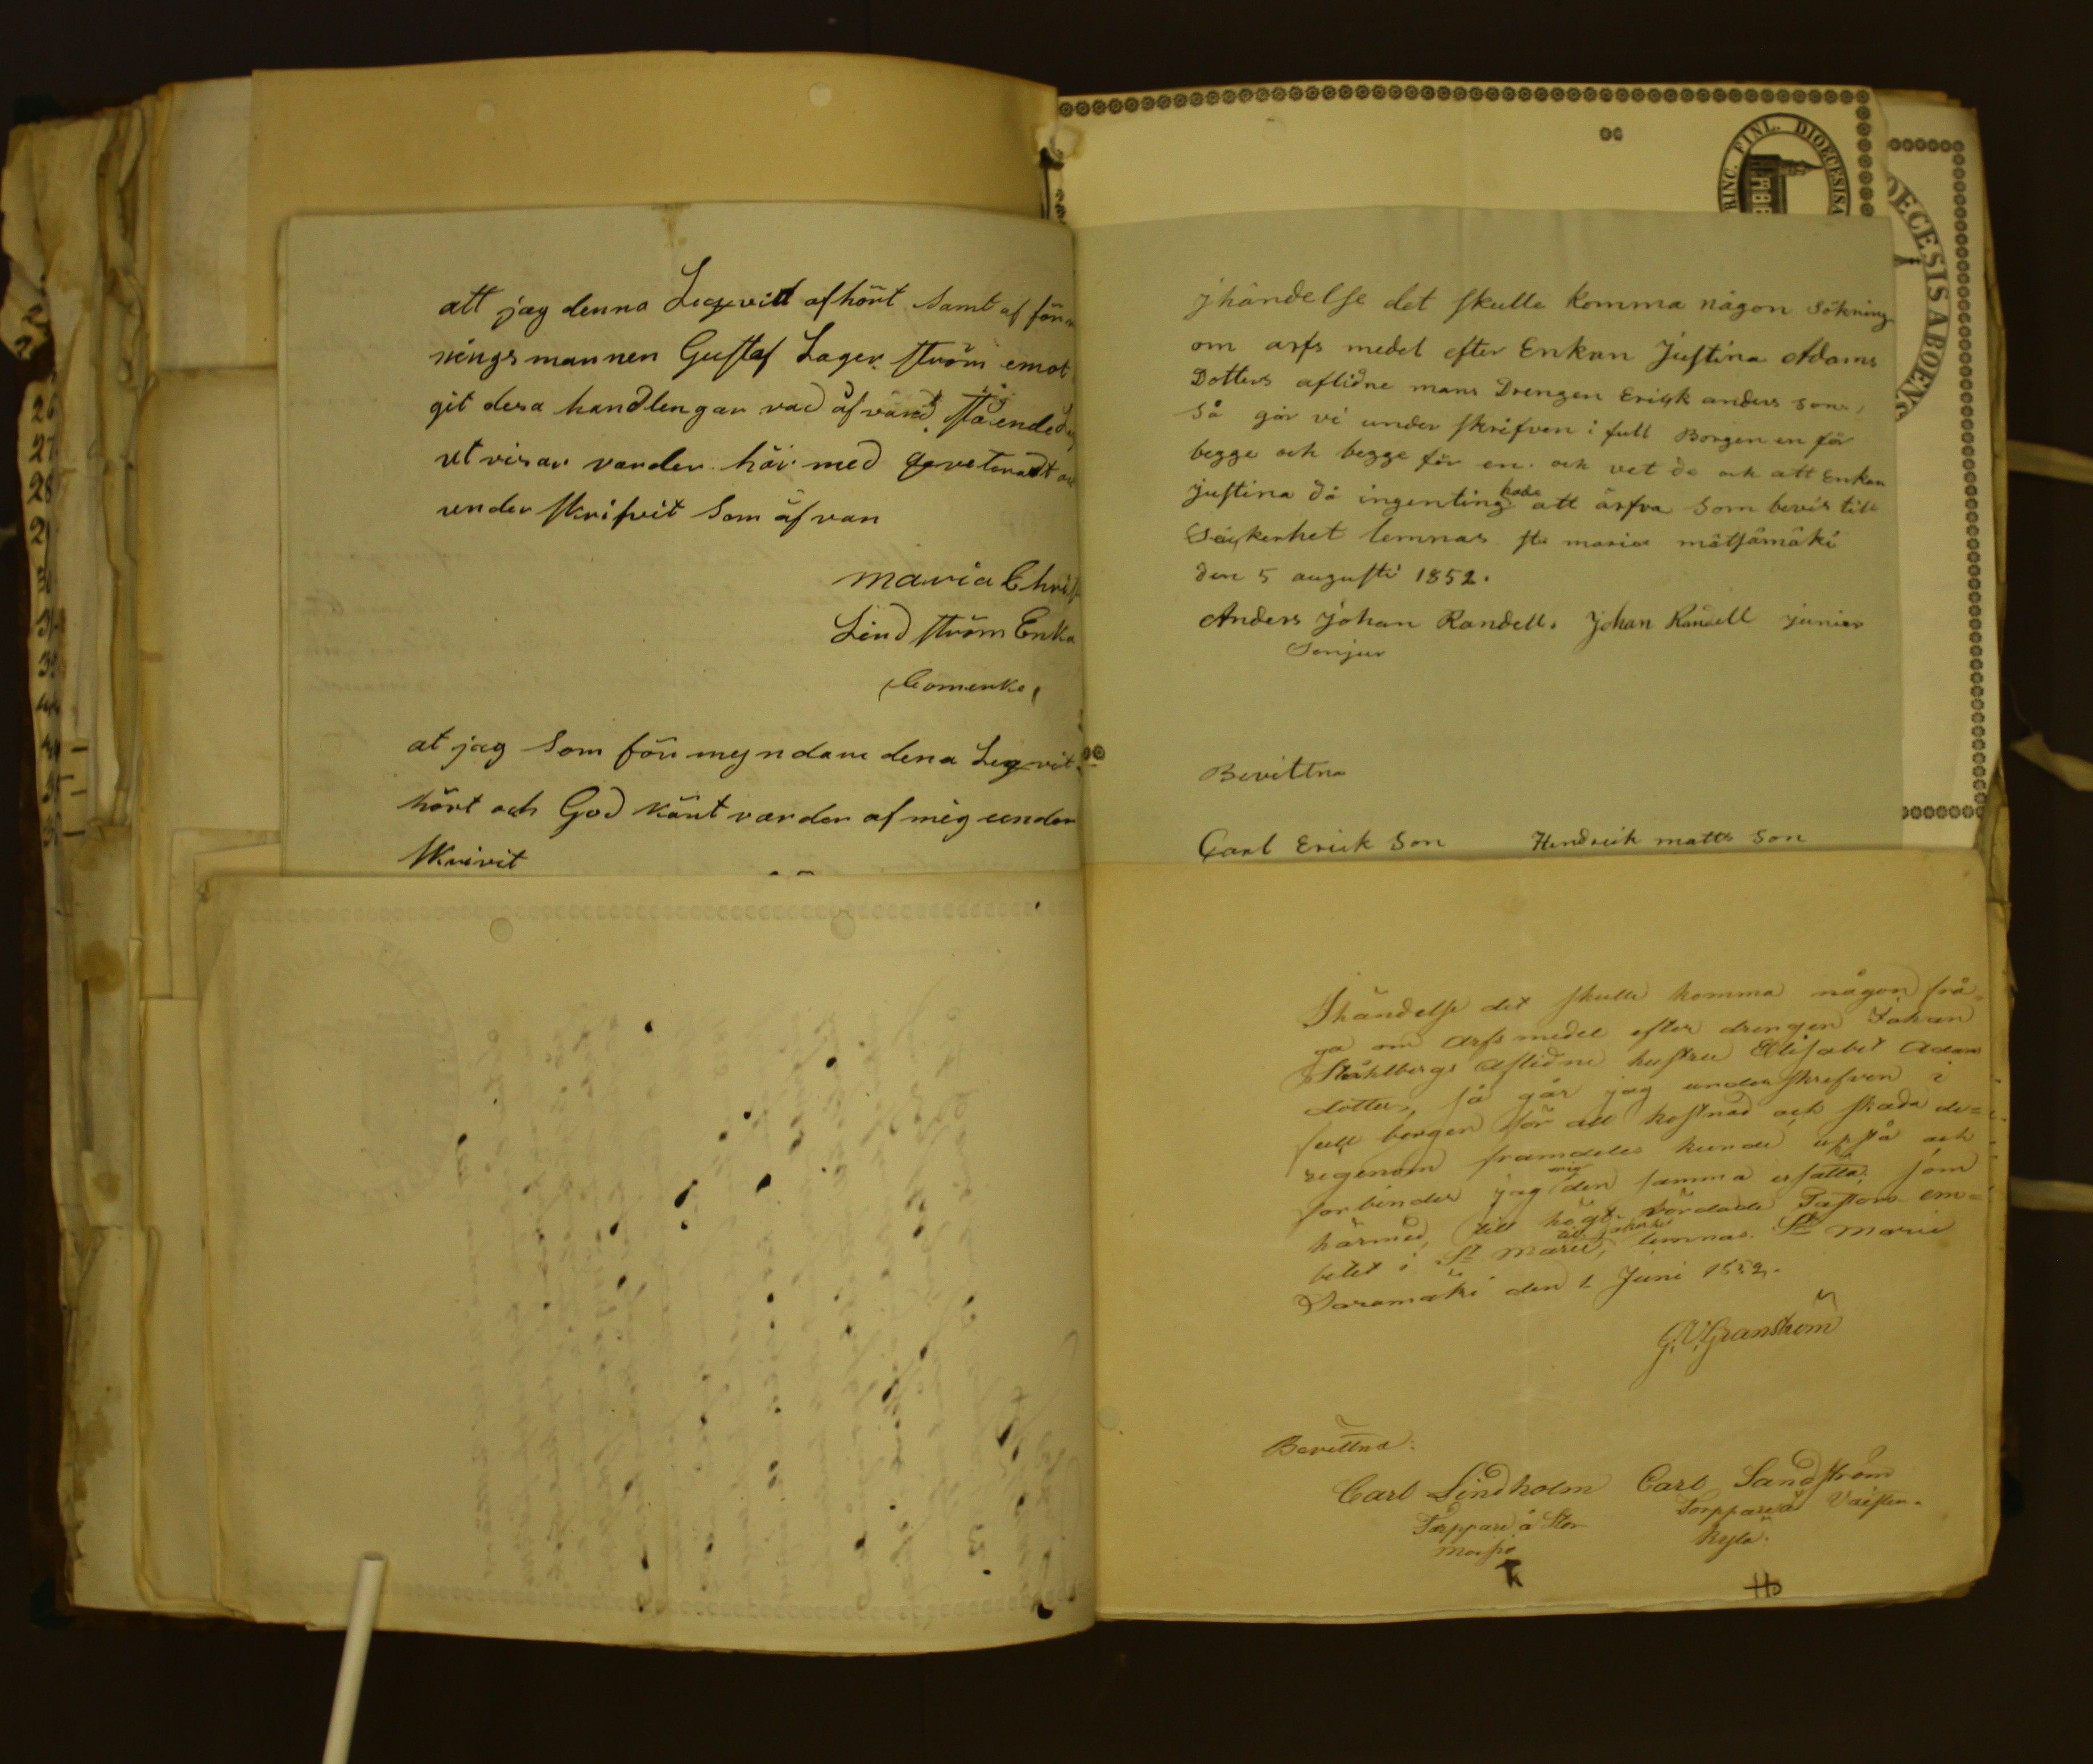 att jag denna Leqvid afhört samt af för
nings mannen Gustaf Lager ström emot
git desa handlengar vad åfvand stående
ut visar varder här med qveteradt
under skrifvit som åfvan
maria Chris
Lind ström Enka
Comenke
at jag som för myndare dena Leqvit
hört och God känt varder af mig under
skrivit
PRINC. FINL. DIOECESIS A
OECESIS ABOENS
jhändelse det skulle komma någon sökning
om arfs medel efter Enkan Justina Adams
Dotters aflidne mans Drengen Erik anders sons,
så går vi under skrifven i full Borgen en för
begge och begge för en. och vet de och att Enkan
justina då ingenting hade att ärfva som bevis till
Säkerhet lemnas sta maria mätsämäki
den 5 augusti 1852.
Anders Johan Randell. Johan Randell junior
Senjur
Bevittna
Carl Erick son Hendrich matts son
I händelse det skulle komma någon frå-
ga om arfs medel efter drengen Johan
Ståhlbergs Aflidne hustru Elisabet Adams
dotter, så går jag underskrefven i
full borgen för all kostnad och skada de=
regenom framdeles kunde uppstå och
förbinder jag mig den samma ersätta, som
härmed, till högt vördade Pastors em=
betet i St Marie, lemnas. St Marie
Saramäki den 1 Juni 1852.
G. V. Granström
Bevittna:
Carl Lindholm Carl Sandström
Torppare å Stor Torppare å Vaisten-
kyla.